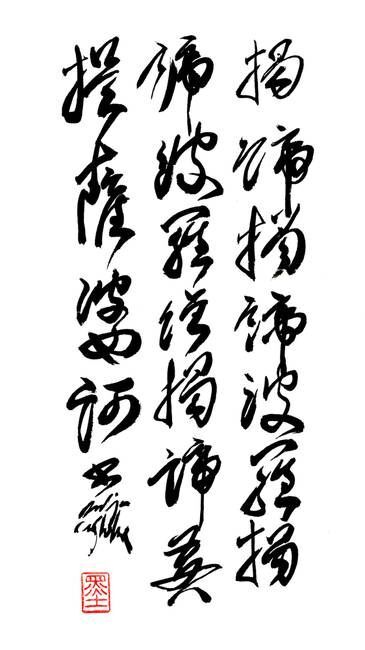 揭諦揭諦波羅揭
諦波羅僧揭諦菩
提薩婆訶
墨